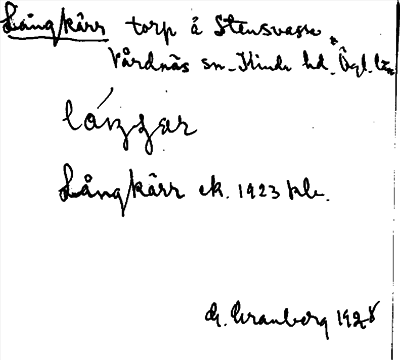 Långkärr torp å Stensvassa
Vårdnäs sn. Kinda hd. Ögl. län
Långkärr ek. 1923 kle.
G. Granberg 1928